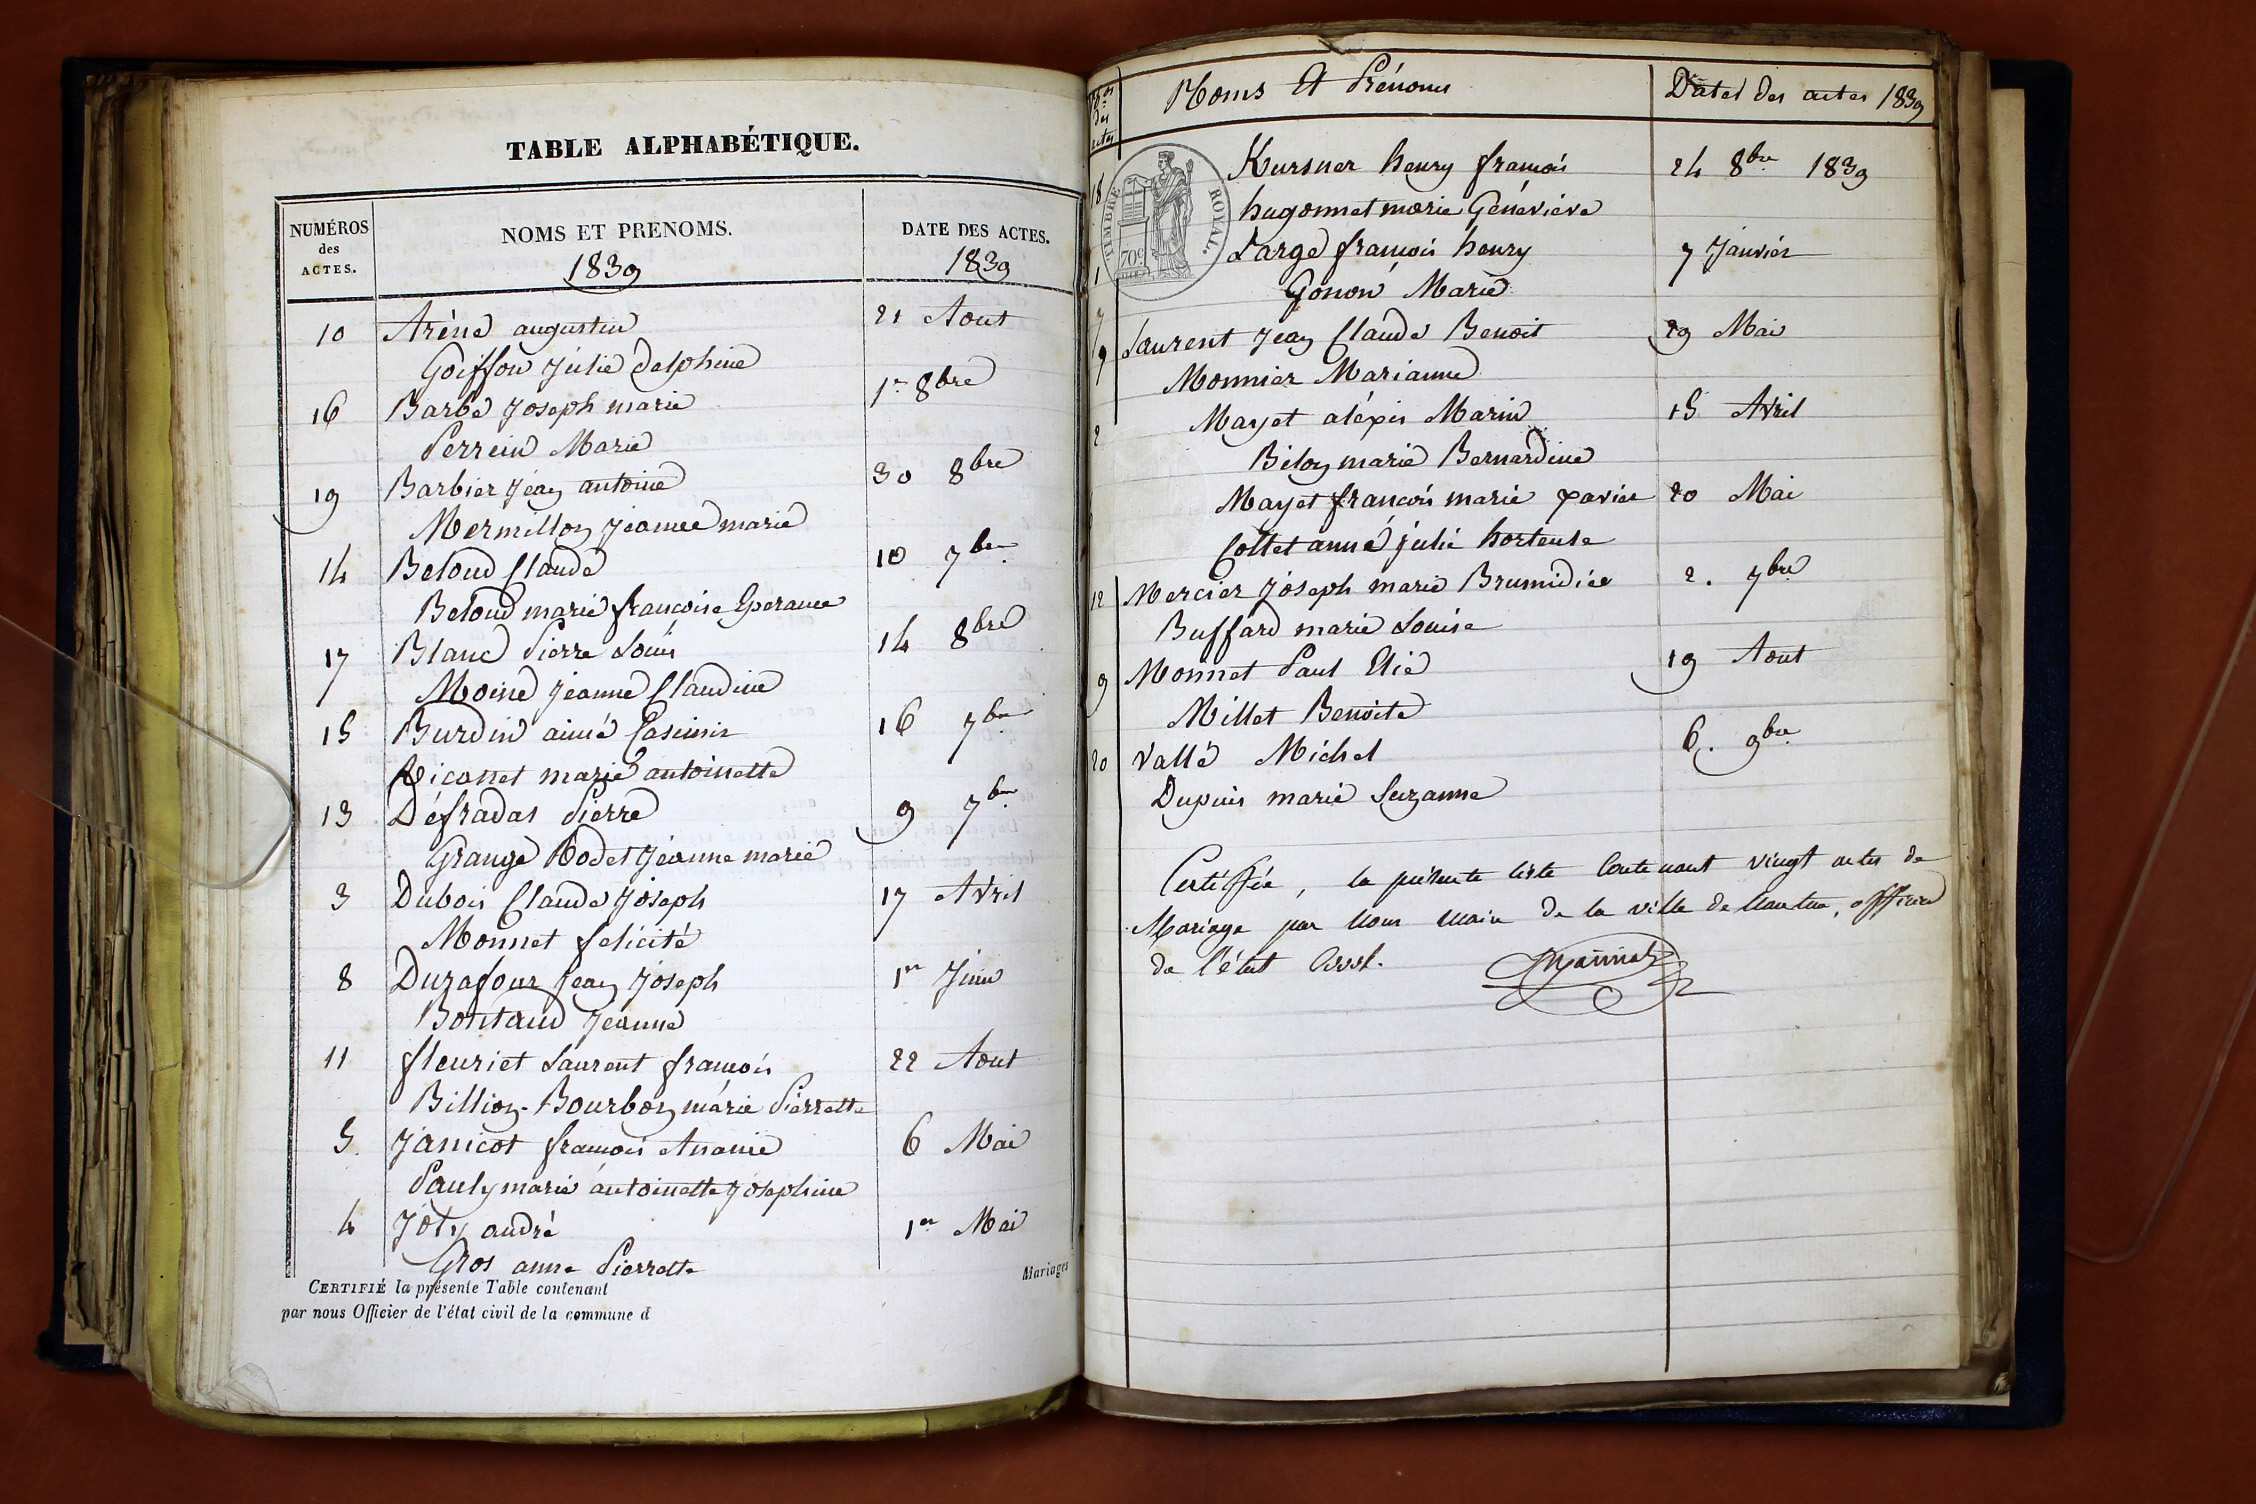 TABLE ALPHABÉTIQUE.
NUMÉROS des ACTES. NOMS ET PRENOMS. 1839 DATE DES ACTES. 1839
10 Arène augustin 21 Aout
Goiffon Julie delphine
16 Barbe Joseph marie 1er 8bre
Perrein Marie
19 Barbier Jean antoine 30 8bre
Mermillon Jeanne marie
14 Beloud Claude 10 7bre
Beloud marie françoise Esperance
17 Blanc Pierre Louis 14 8bre
Moine Jeanne Claudine
15 Burdin aimé Casimir 16 7bre
marie antoinette
13 Défradas Pierre 9 7bre
Grange Bodet Jeanne marie
3 Dubois Claude Joseph 17 Avril
Monnet felicité
8 Durafour Jean Joseph 1er Juin
Bontaud Jeanne
11 fleuriet Laurent françois 22 Aout
Billion-Bourbon marie Pierrette
5. Janicot françois Ananie 6 Mai
Pauly marie antoinette Josephine
4 Joly andré 1er Mai
Gros anne Pierrette
CERTIFIÉ la présente Table contenant Mariages
par nous Officier de l'état civil de la commune d
Nos des actes Noms Et Prénoms Dates des actes 1839
TIMBRE ROYAL.
70c
18 Kursner henry françois 24 8bre 1839
hugonnet marie Généviève
1 Large françois henry 7 Janvier
Gonon Marie
7 Laurent Jean Claude Benoit 29 Mai
Monnier Marianne
2 Mayet aléxis Marin 15 Avril
Béloy marie Bernardine
Mayet françois marie xavier 20 Mai
Collet anne julie hortense
12 Mercier Joseph marie 2. 7bre
Buffard marie Louise
9 Monnet Paul Elie 19 Aout
Millet Benoite
20 Vallé Michel 6. 9bre
Dupuis marie Suzanne
Certifiée, la présente liste Contenant vingt actes de
Mariage par Nous Maire De la ville de Nantua, officier
de l'état Civil.